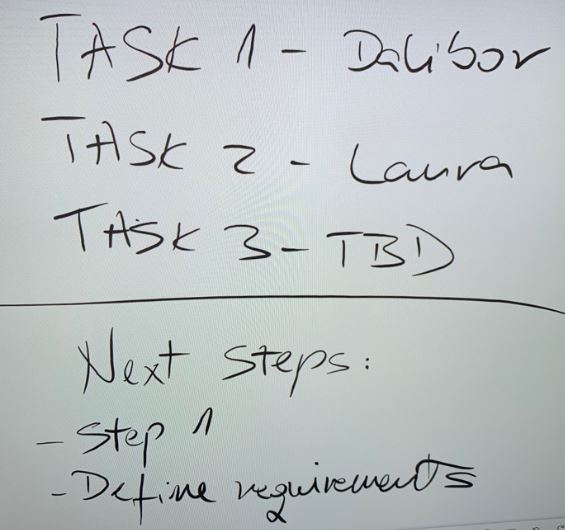 TASK 1 - Dalibor
TASK 2 - Laura
TASK 3 - TBD
Next steps:
- Step 1
- Define requirements